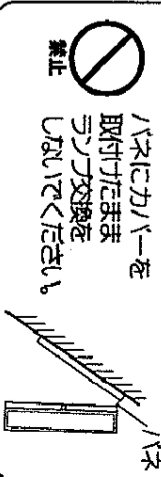 禁止
バネにカバーを
取付けたまま
ランプ交換を
しないでください。
バネ